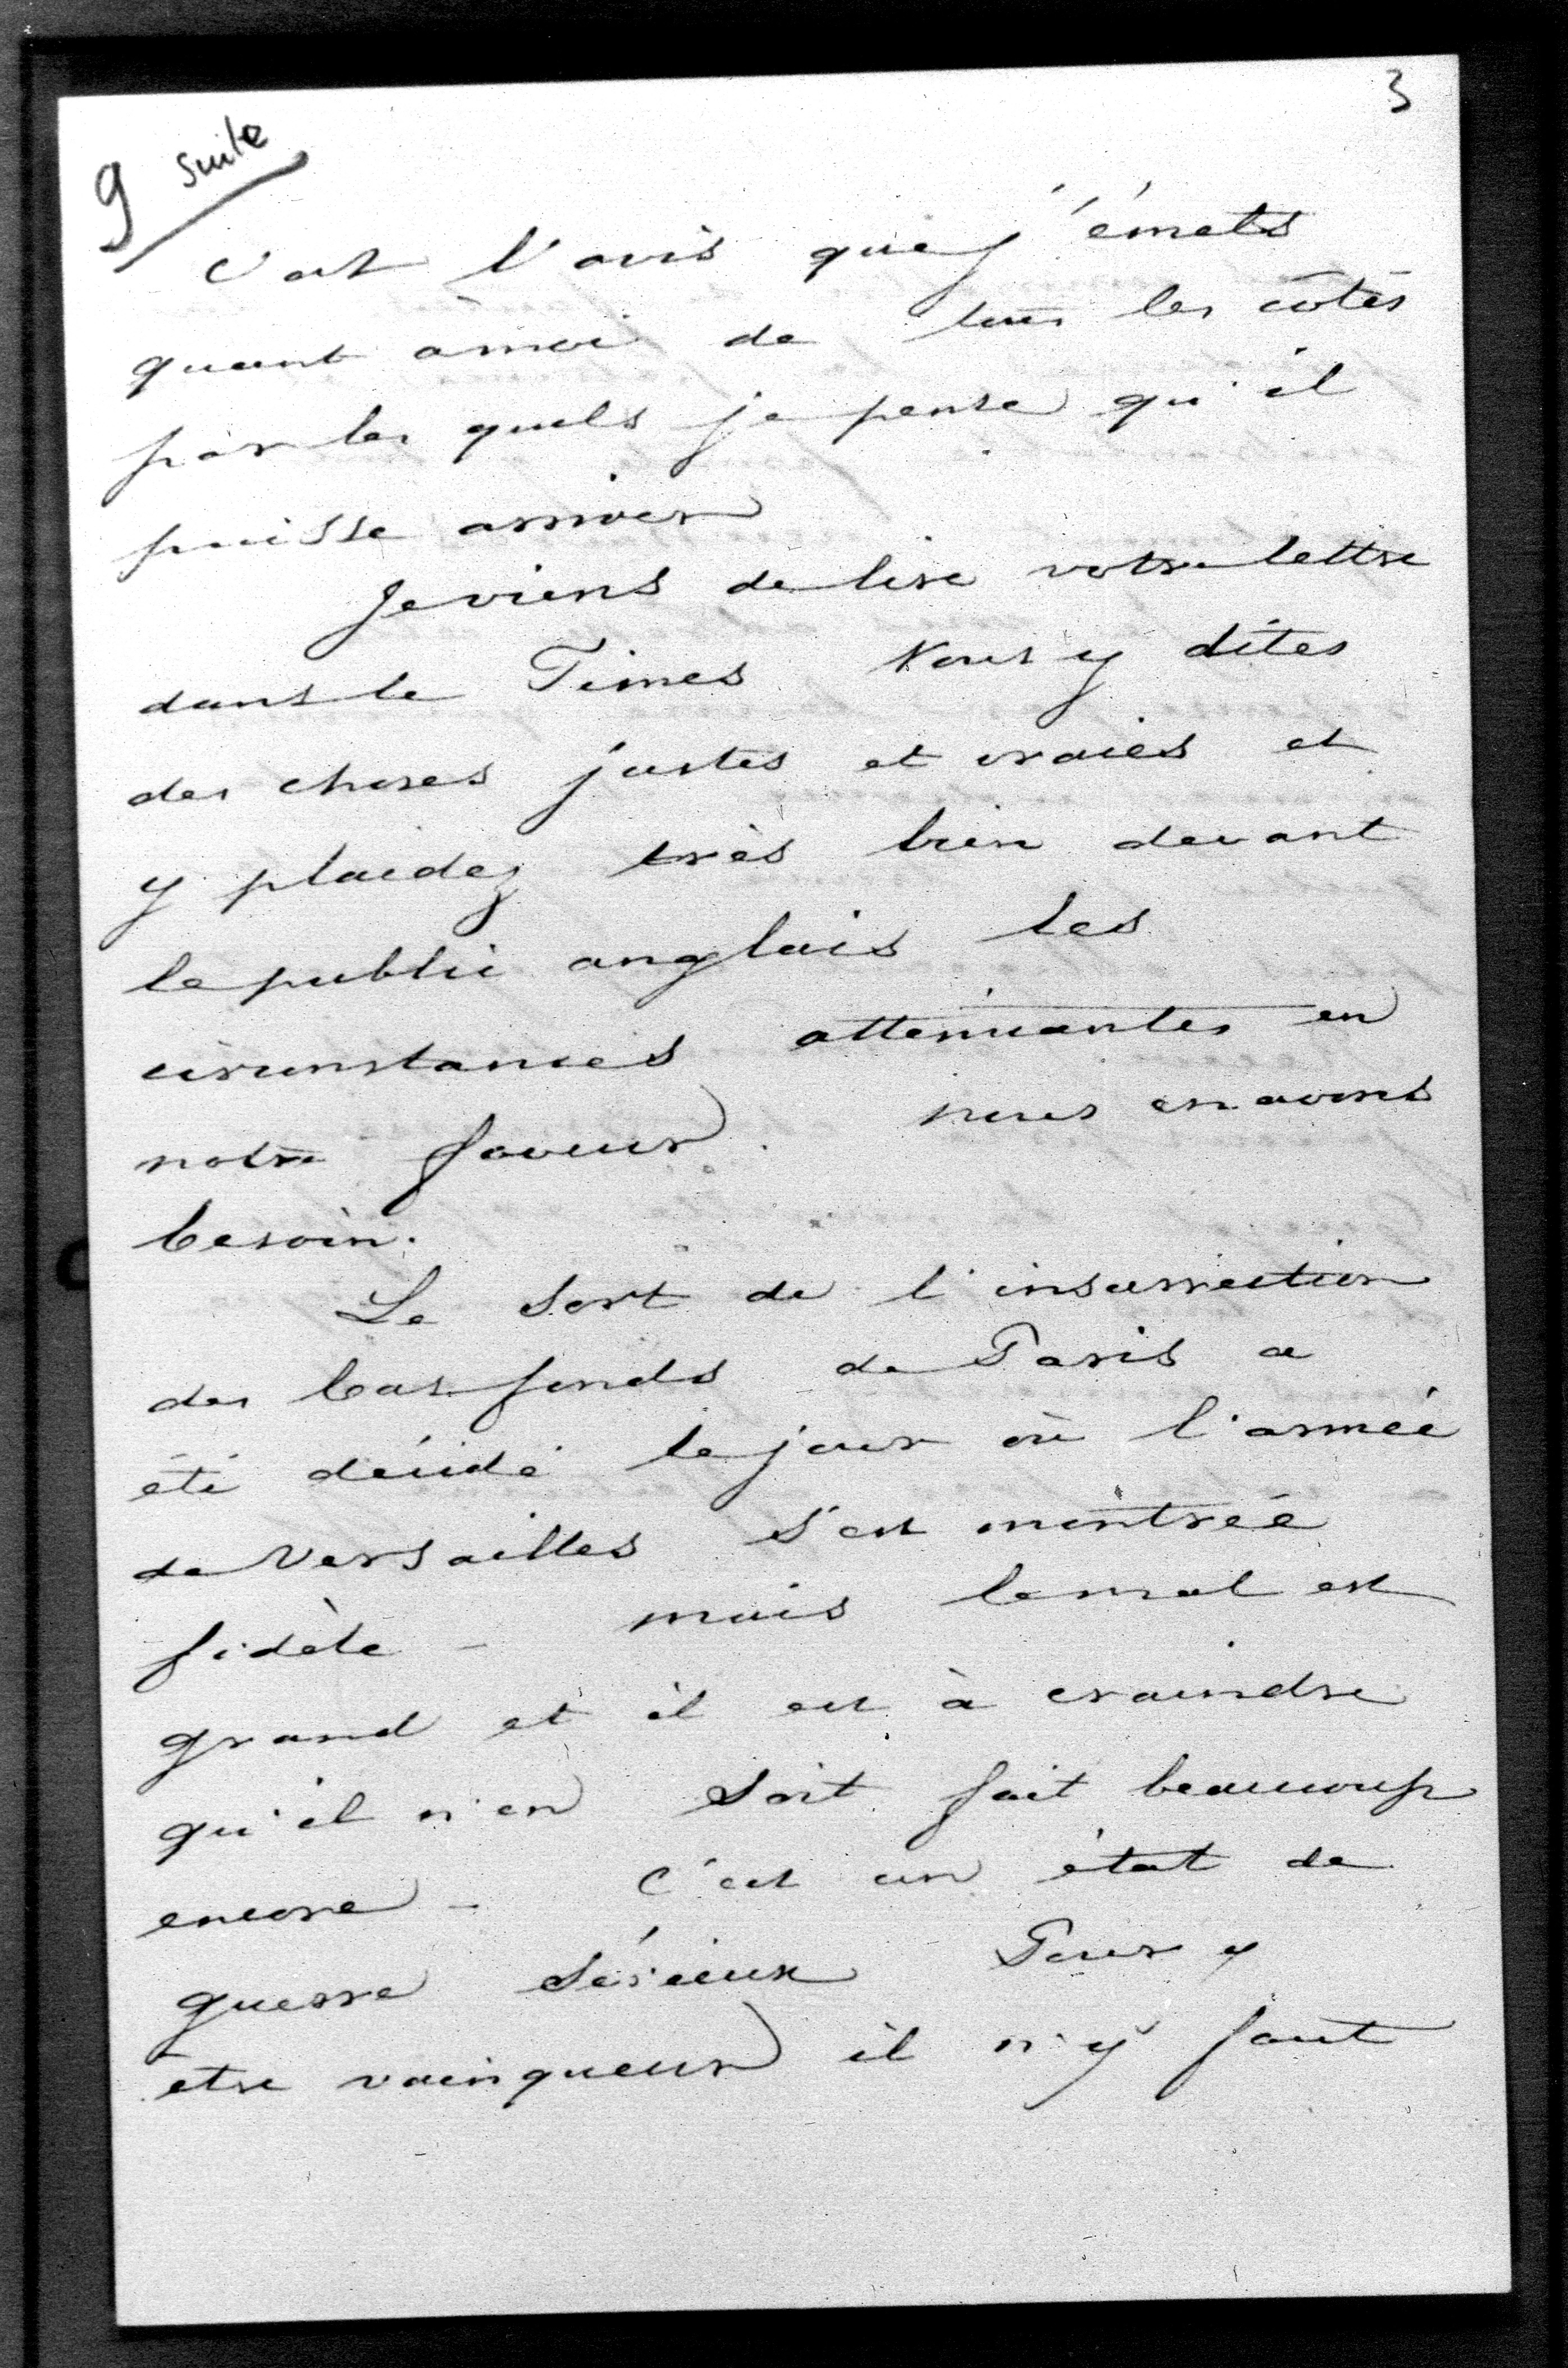 3
9 suite
C'est l'avis que j'émets
quant à moi de tous les côtés
par les quels je pense qu'il
puisse arriver
Je viens de lire votre lettre
dans le Times Vous y dites
des choses justes et vraies et
y plaidez très bien devant
le public anglais les
circonstances attenuantes en
notre faveur. nous en avons
besoin.
Le sort de l'insurrection
des bas fonds de Paris a
été décidé le jour où l'armée
de Versailles s'est montrée
fidèle - mais le mal est
grand et il est à craindre
qu'il n'en soit fait beaucoup
encore - C'est un état de
guerre sérieux Pour y
être vainqueur il n'y faut